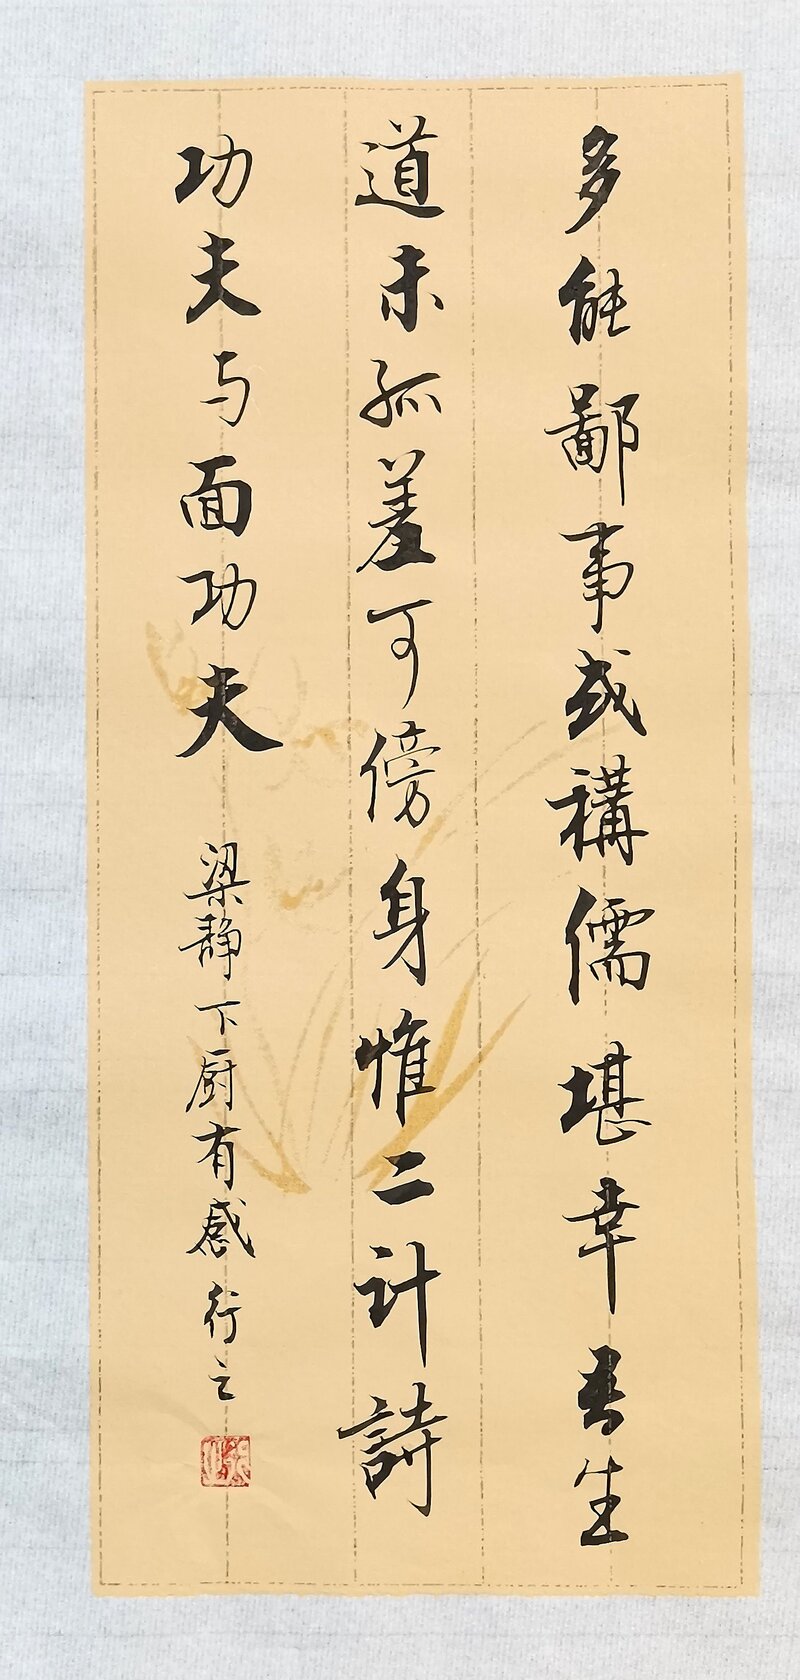 多能鄙事或講儒堪幸吾生
道未孤羞可傍身惟二计詩
功夫与面功夫
梁静下厨有感行之